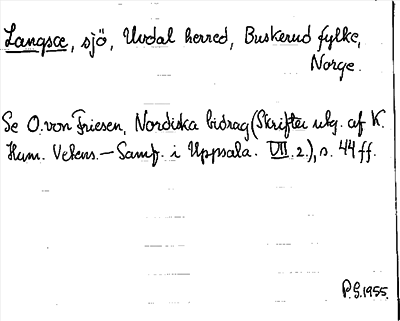 Langsæ, sjö, Uvdal herred, Buskerud fylke,
Norge.
Se O. von Friesen, Nordiska bidrag (Skrifter utg. af K.
Hum. Vetens.-Samf. i Uppsala. VII.2.), s. 44 ff.
P.G. 1955.